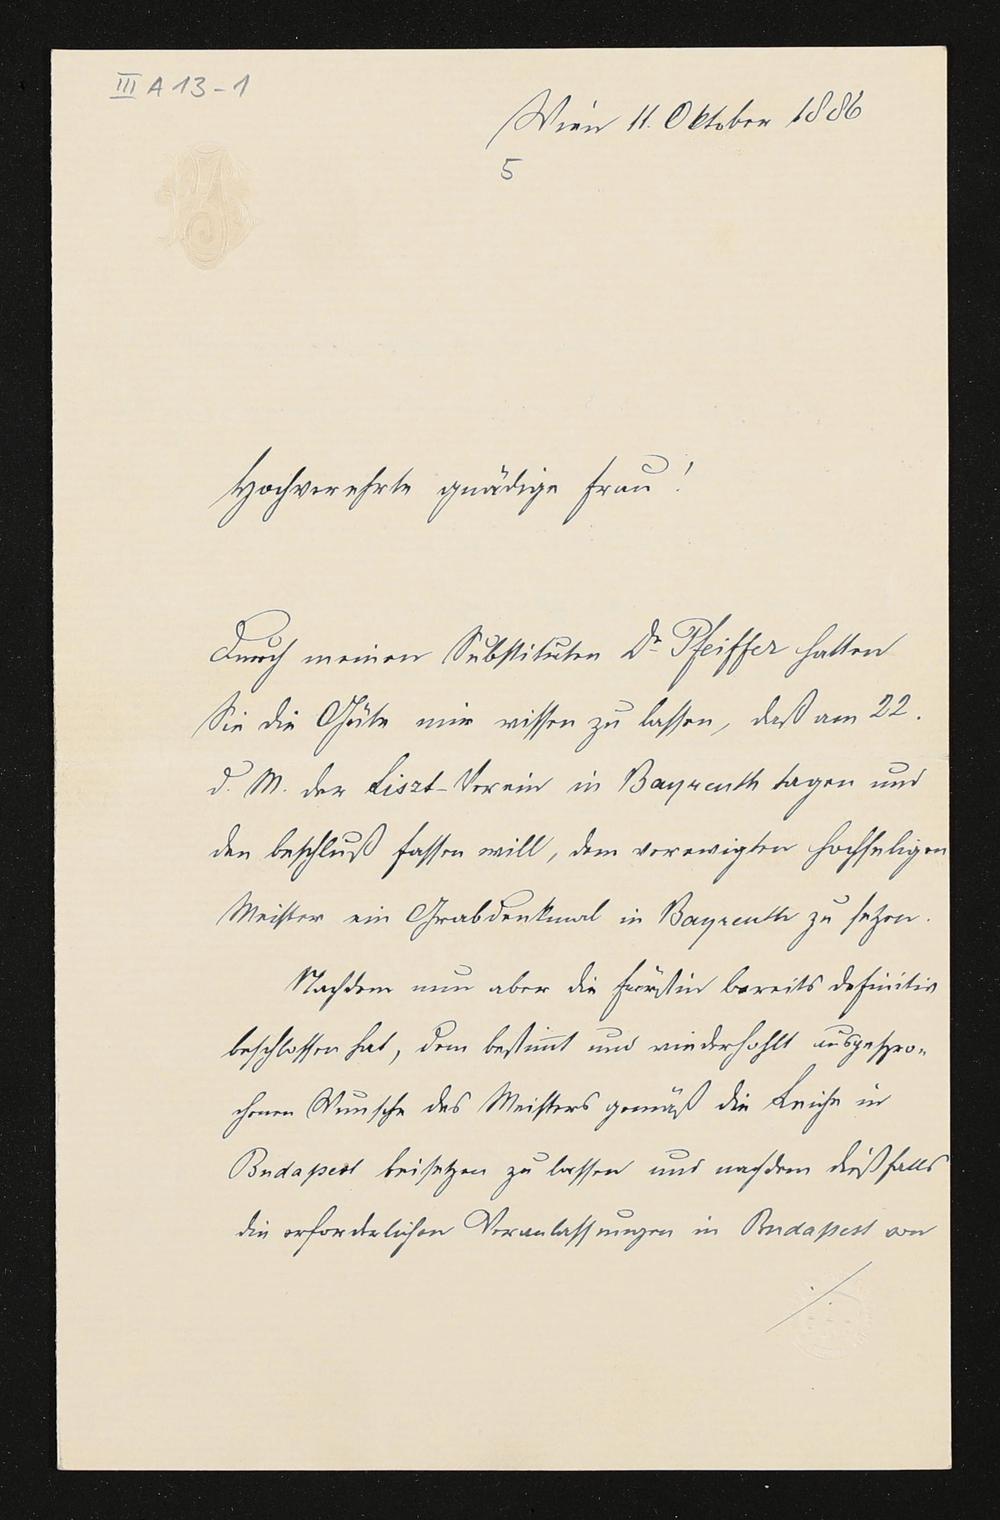 III A 13-1
Wien 11. Oktober 1886
5
Hochverehrte gnädige Frau!
Durch meinen Substituten Dr Pfeiffer hatten
Sie die Güte mir wissen zu lassen, daß am 22.
d. M. der Liszt-Verein in Bayreuth tagen und
den beschluß fassen will, dem verewigten hochseligen
Meister ein Grabdenkmal in Bayreuth zu setzen.
Nachdem nun aber die Fürstin bereits definitiv
beschlossen hat, dem bestim̅t und wiederhohlt ausgespro-
chenen Wunsche des Meisters gemäß die Leiche in
Budapest beisetzen zu lassen und nachdem dießfalls
die erforderlichen Veranlassungen in Budapest von
./.